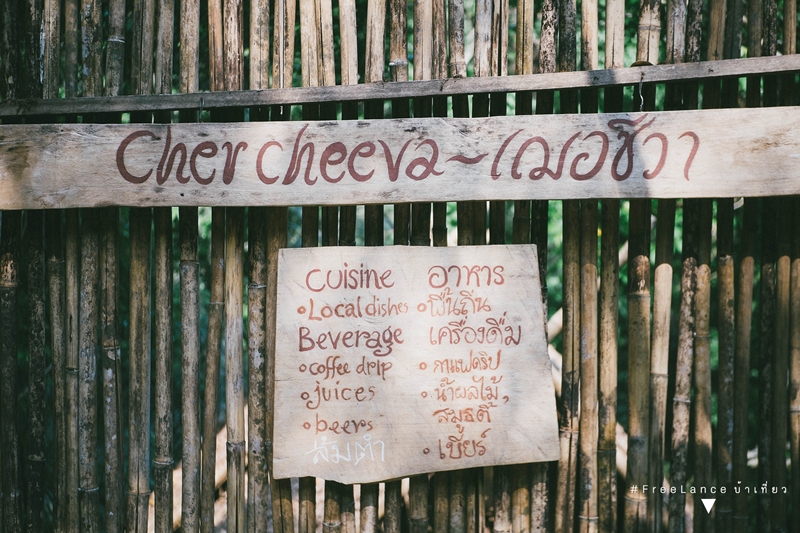 Cher cheeva ~ เฌอชีวา
cuisine
• Local dishes
Beverage
• coffee drip
• juices
• beers
ส้มตำ
อาหาร
• พื้นถิ่น
เครื่องดื่ม
• กาแฟดริป
• น้ำผลไม้,
สมูธตี้
• เบียร์
#FreeLance บ้าเที่ยว